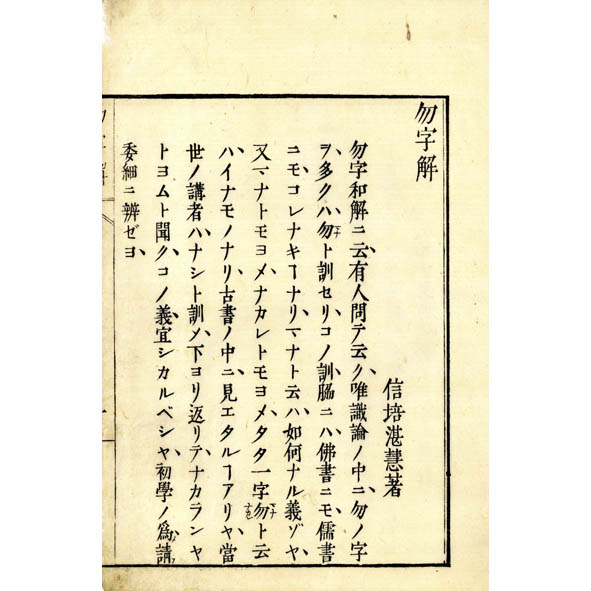 勿字解
信培湛慧著
勿字和解ニ云有人問テ云ク唯識論ノ中ニ勿ノ字
ヲ多クハ勿ト訓セリコノ訓脇ニハ佛書ニモ儒書
ニモコレナキヿナリマナト云ハ如何ナル義ゾヤ
又マナトモヨメナカレトモヨメタタ一字勿ト云
ハイナモノナリ古書ノ中ニ見エタルヿアリヤ當
世ノ講者ハナシト訓メ下ヨリ返リテナカランヤ
トヨムト聞クコノ義宜シカルベシヤ初學ノ爲請
委細ニ辨ゼヨ
勿字解